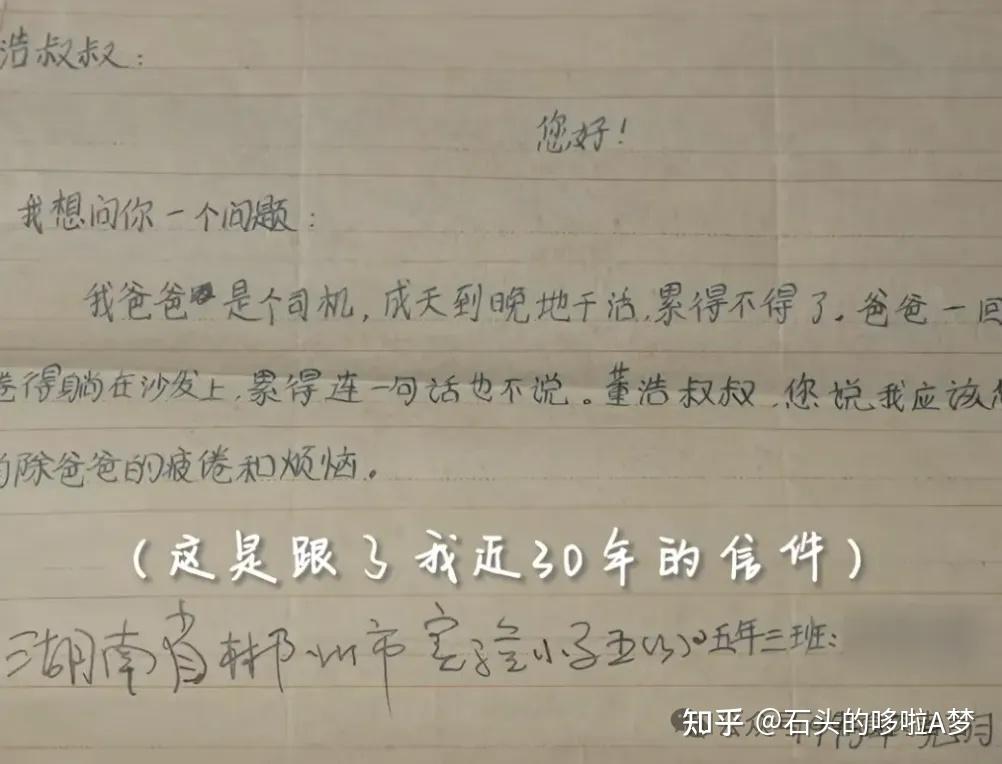 浩叔叔：
您好！
我想问你一个问题：
我爸爸是个司机，成天到晚地干活，累得不得了。爸爸一回
得躺在沙发上，累得连一句话也不说。董浩叔叔，您说我应该
除爸爸的疲倦和烦恼。
（这是跟了我近30年的信件）
湖南省郴州市实验小学五（3） 五年三班：
知乎 @石头的哆啦A梦